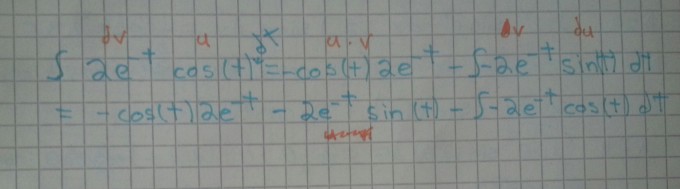 dv u dt u·v v du
∫ 2e^-t cos(t) = -cos(t) 2e^-t - ∫-2e^-t sin(t) dt
= -cos(t) 2e^-t - 2e^-t sin(t) - ∫-2e^-t cos(t) dt